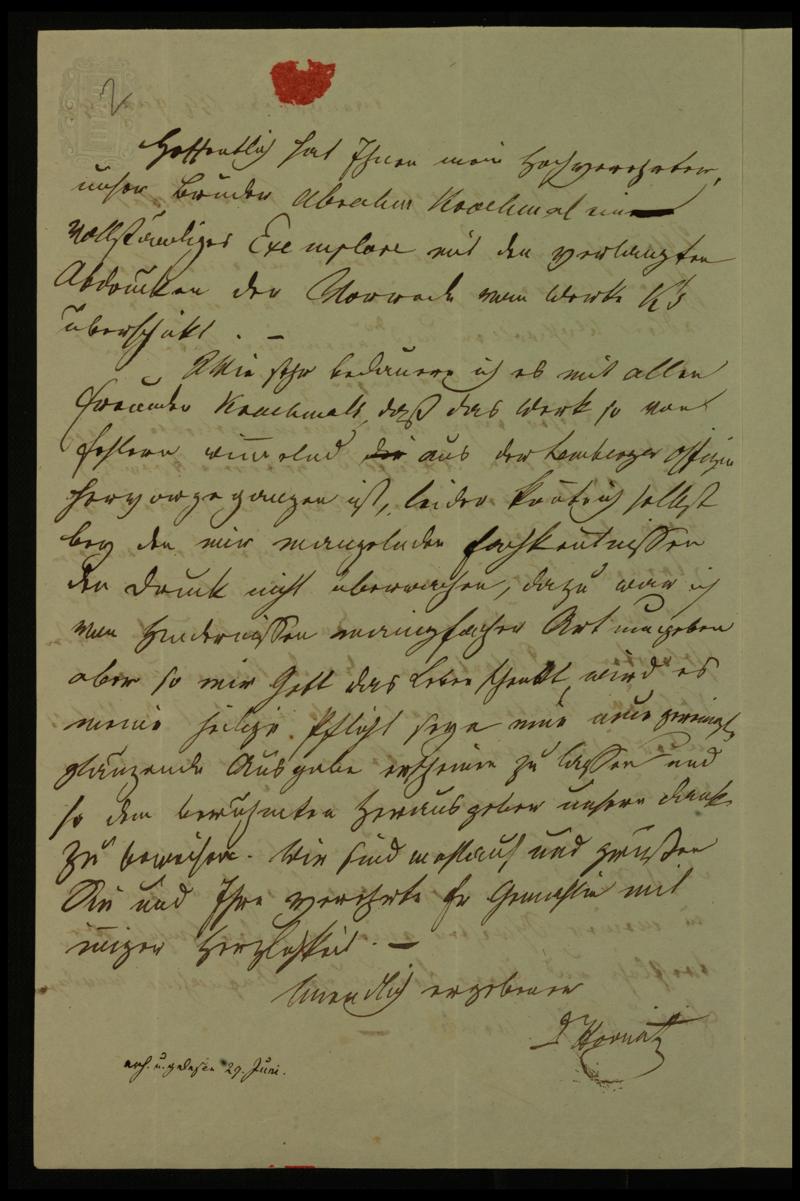 2
Hoffentlich hat Ihnen mein Hochverehrter,
unser Bruder Abraham Krochmal ein
vollständiges Exemplare mit den verlangten
Abdrucken der Vorrede vom Werke K's
überschikt. —
Wie sehr bedauere ich es mit allen
Freunden Krochmals, daß das Werk so von
Fehlern wimmelnd aus der Lemberger Offizin
hervorgegangen ist, leider konnte ich selbst
bey den mir mangelnden Fachkentnissen
den Druck nicht überwachen, dazu war ich
von Hindernissen mannigfacher Art umgeben
aber so mir Gott das Leben schenkt, wird es
meine heilige Pflicht seyn eine neue gereinigte
glänzende Ausgabe erscheinen zu lassen und
so dem berühmten Herausgeber unsern Dank
zu beweisen. Wir sind wohlauf und grüßen
Sie und Ihre verehrte Fr Gemahlin mit
inniger Herzlichkeit. —
Unendlich ergebener
Horwitz
u. gelesen 29. Juni.